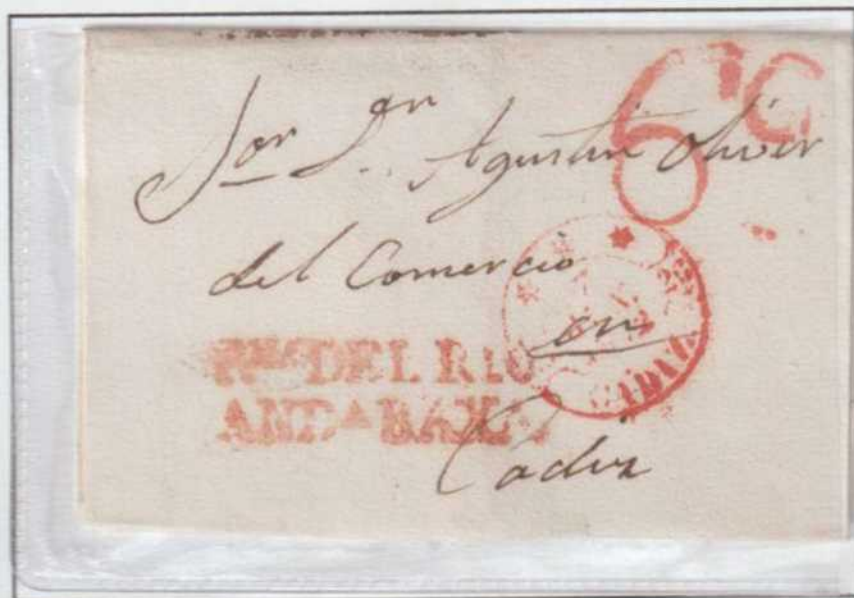 6 C
Sor Dn Agustin Oliver
del Comercio
en
Cadiz
DEL RIO
ANDA BAXA
CADIZ